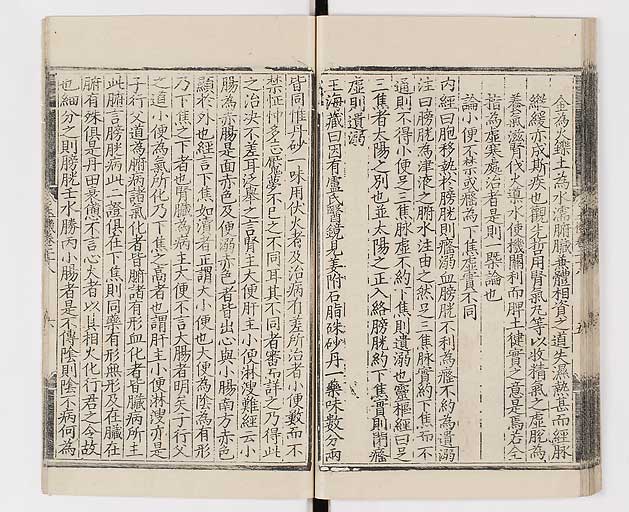 金為火爍土為水濡腑臟兼體相資之道失濕熱甚而經脉
縱緩亦成斯疾也觀先哲用腎氣丸等以收精氣之虛脫為
養氣滋腎伐火導水使機關利而脾土健實之意是焉若全
指為虛寒處治者是則一槩論也
論小便不禁或癃為下焦虛實不同
內經曰胞移熱於膀胱則癃溺血膀胱不利為癃不約為遺溺
注曰膀胱為津液之腑水注由之然足三焦脉實約下焦而不
通則不得小便足三焦脉虛不約下焦則遺溺也靈樞經曰足
三焦者太陽之別也並太陽之正入絡膀胱約下焦實則閉癃
虛則遺溺
王海藏曰因有盧氏醫鏡見姜附石脂硃砂丹一藥味數分兩
皆同惟丹砂一味用伏火者及治病有差所治者小便數而不
禁怔忡多忘魘夢不已之不同耳其不同者審而詳之乃得此
之治決不差耳泛舉之言腎主大便肝主小便淋溲難經云小
腸為赤腸是面赤色及便溺赤色者皆出心與小腸南方赤色
顯於外也經言下焦如瀆者正謂大小便也大便為陰為有形
乃下焦之下者也腎臟為病主大便不言大腸者明矣子行父
之道小便為氣所化乃下焦之高者也謂肝主小便淋溲亦是
子行父道為腑病諸氣化者皆腑諸有形血化者皆臟病所主
此腑言膀胱病此二證俱在下焦則同藥有形無形及在臟在
腑有殊俱是丹田衰憊不言心火者以其相火化行君之令故
也細分之則膀胱壬水勝丙小腸者是不傳陰則陰不病何為